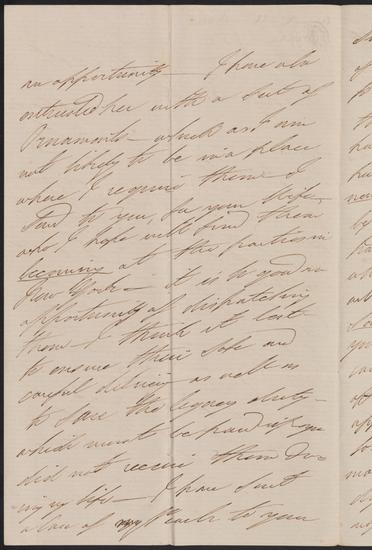 an opportunity — I have also
entrusted her with a Set of
Ornaments — which as I am
not likely to be in a place
where I require them I
Send to you, for your Wife —
who I hope will find them
becoming at the parties in
New York — it is so good an
opportunity of dispatching
them — I think it best
to ensure their safe and
careful delivery as well as
to save the legacy duty —
which must be paid if you
did not receive them du=
ing my life — I have sent
a lace of my to your